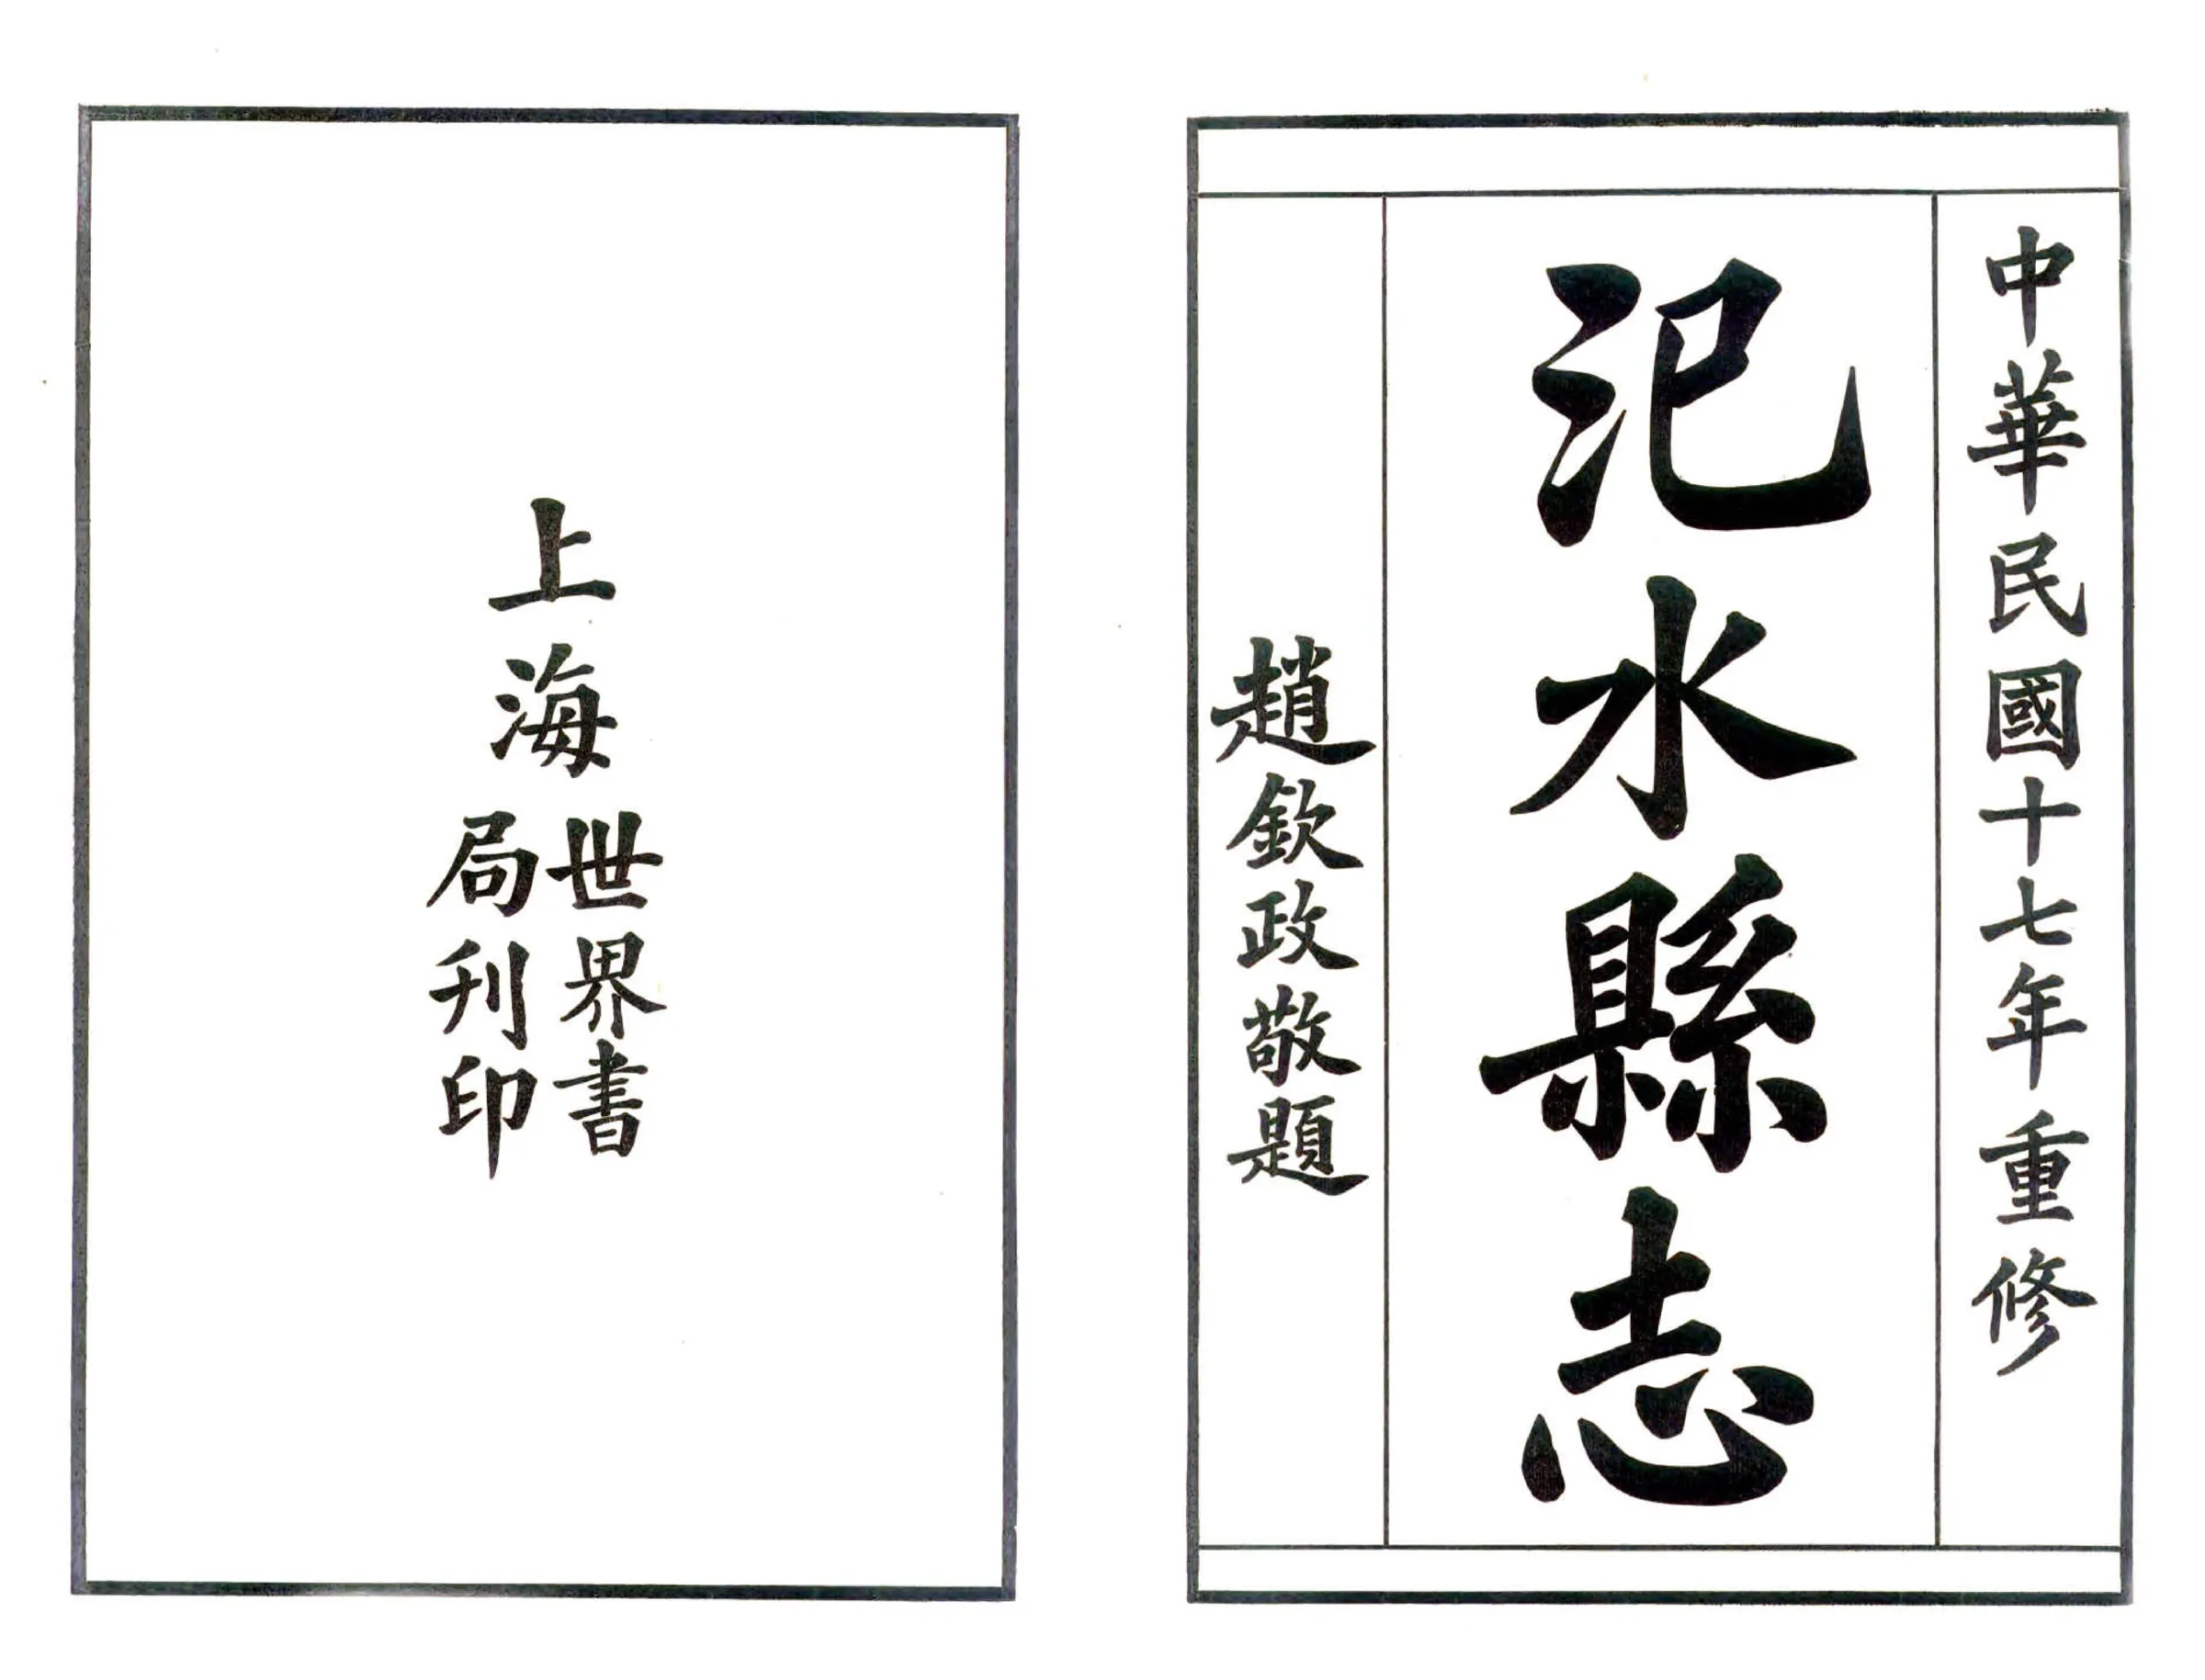 中華民國十七年重修
汜水縣志
趙欽政敬題
上海
世界書
局刊印